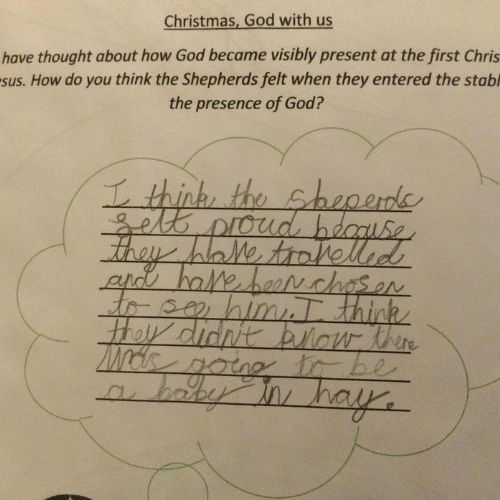 Christmas, God with us
have thought about how God became visibly present at the first Chris
esus. How do you think the Shepherds felt when they entered the stabl
the presence of God?
I think the sheperds
felt proud becguse
they have travelled
and have been chosen
to see him. I think
they didn't know there
was going to be
a baby in hay.